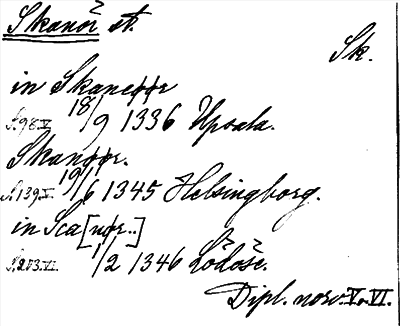 Skanör st.
Sk.
in Skanøør
18/9 1336 Upsala.
S.98.V.
Skanøør.
19/6 1345 Helsingborg.
S.139.V.
in Sca[nør..]
1/2 1346 Lödöse.
S.203.VI.
Dipl. norv. V. VI.